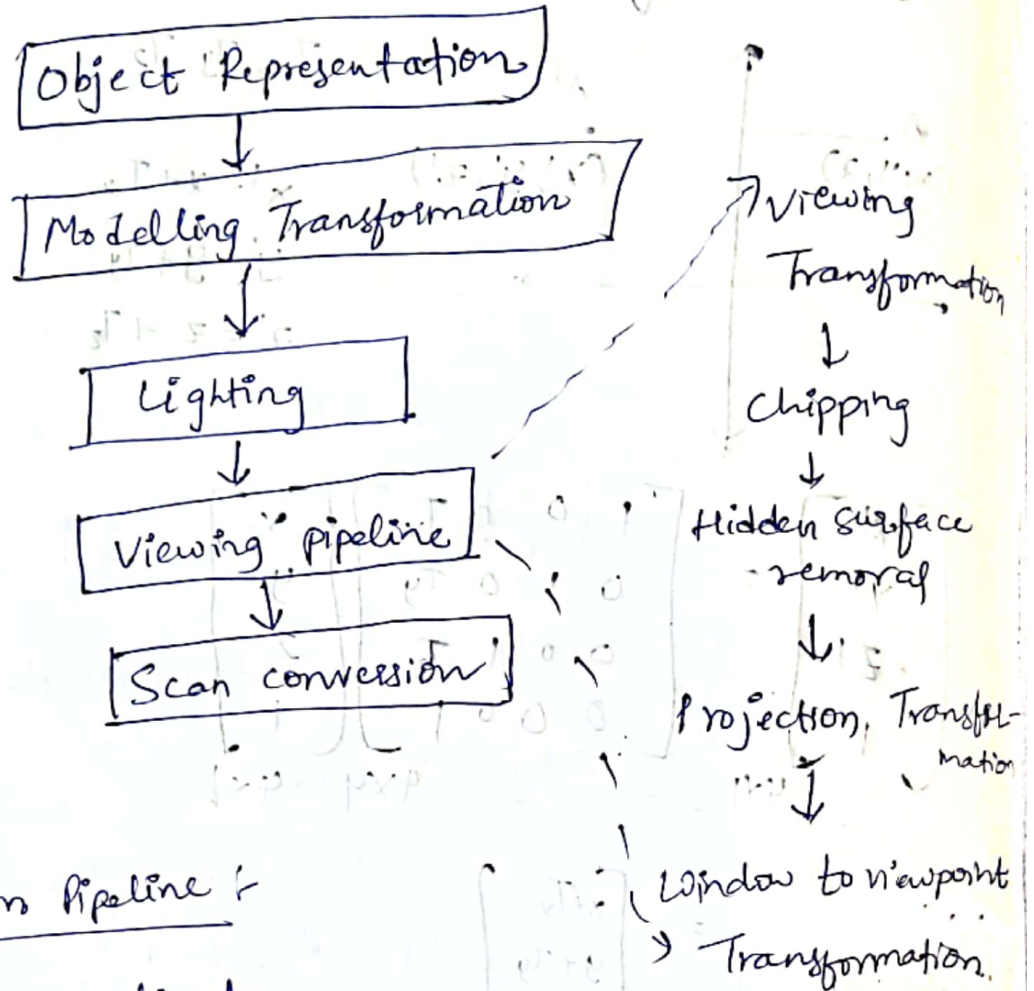 Object Representation
Modelling Transformation
Lighting
Viewing pipeline
Scan conversion
Viewing
Transformation
Chipping
Hidden surface
removal
Projection Transfor-
mation
Window to viewpoint
Transformation
Pipeline :-